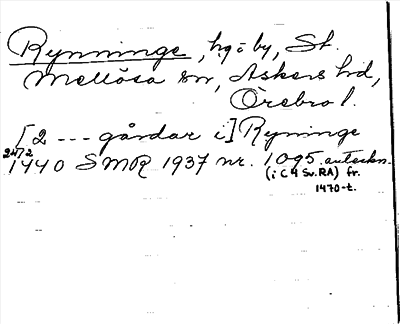 Rynninge, hg o by, St.
Mellösa sn, Askers hd,
Örebro l.
[2 --- gårdar i] Ryninge
24/2
1440 SMR 1937 nr. 1095. anteckn.
(i C 4 Sv.RA) fr.
1470-t.